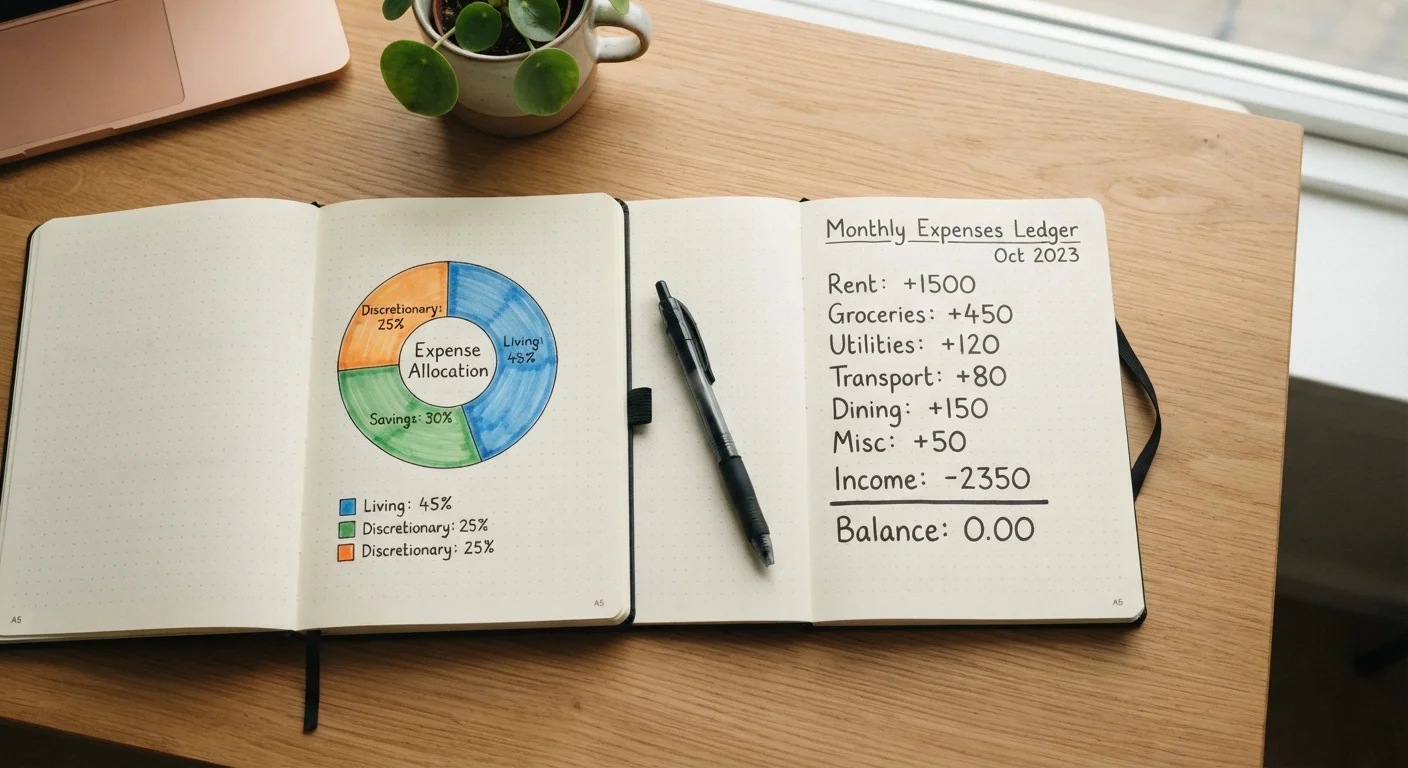 Discretionary:
25%
Living:
45%
Expense
Allocation
Savings: 30%
Living: 45%
Discretionary: 25%
Discretionary: 25%
A5
A5
Monthly Expenses Ledger
Oct 2023
Rent: +1500
Groceries: +450
Utilities: +120
Transport: +80
Dining: +150
Misc: +50
Income: -2350
Balance: 0.00
A5